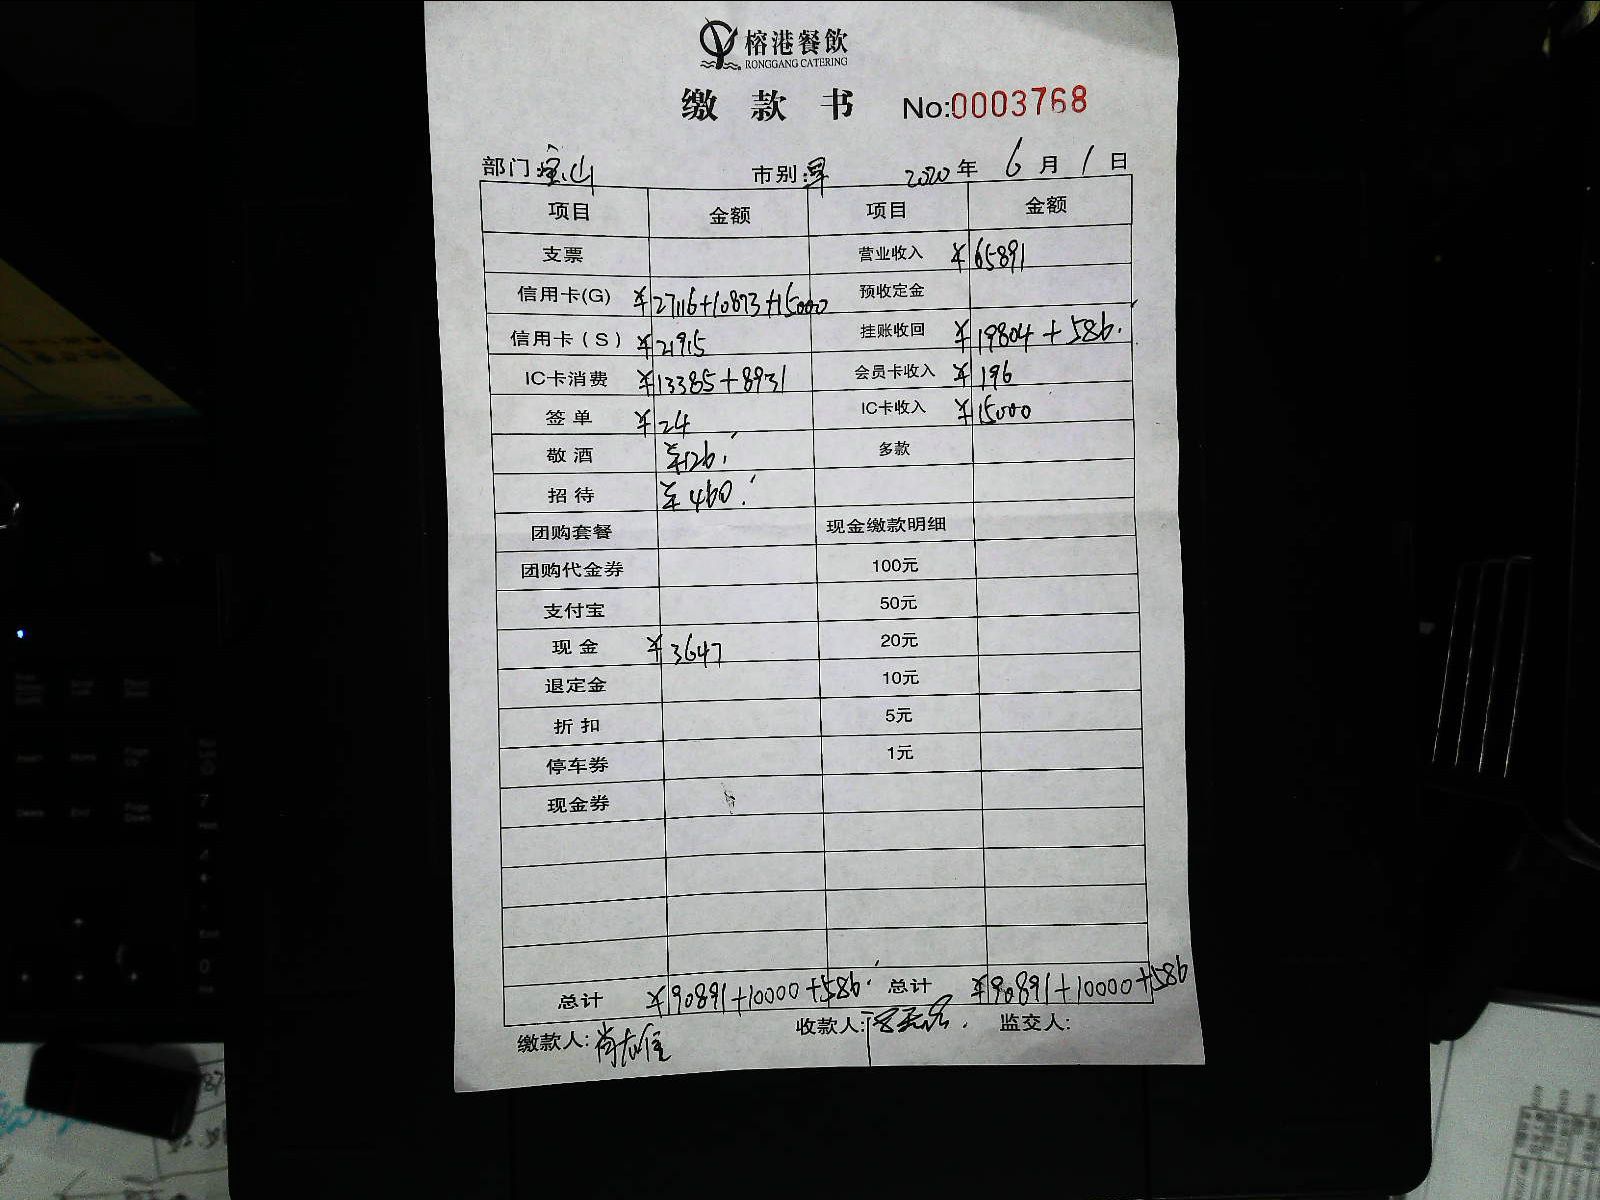 榕港餐飲
RONGGANG CATERING
缴款书 No:0003768
部门:宝山 市别:早 2020年6月1日
项目 金额 项目 金额
支票 营业收入 ¥65891
信用卡(G) ¥27116+10873+15000 预收定金
信用卡(S) ¥21915 挂账收回 ¥19804+586.
IC卡消费 ¥13385+8931 会员卡收入 ¥196
签单 ¥24 IC卡收入 ¥15000
敬酒 ¥126. 多款
招待 ¥460.
团购套餐 现金缴款明细
团购代金券 100元
支付宝 50元
现金 ¥3647 20元
退定金 10元
折扣 5元
停车券 1元
现金券
总计 ¥90891+10000+586. 总计 ¥90891+10000+586
缴款人: 收款人: 监交人: